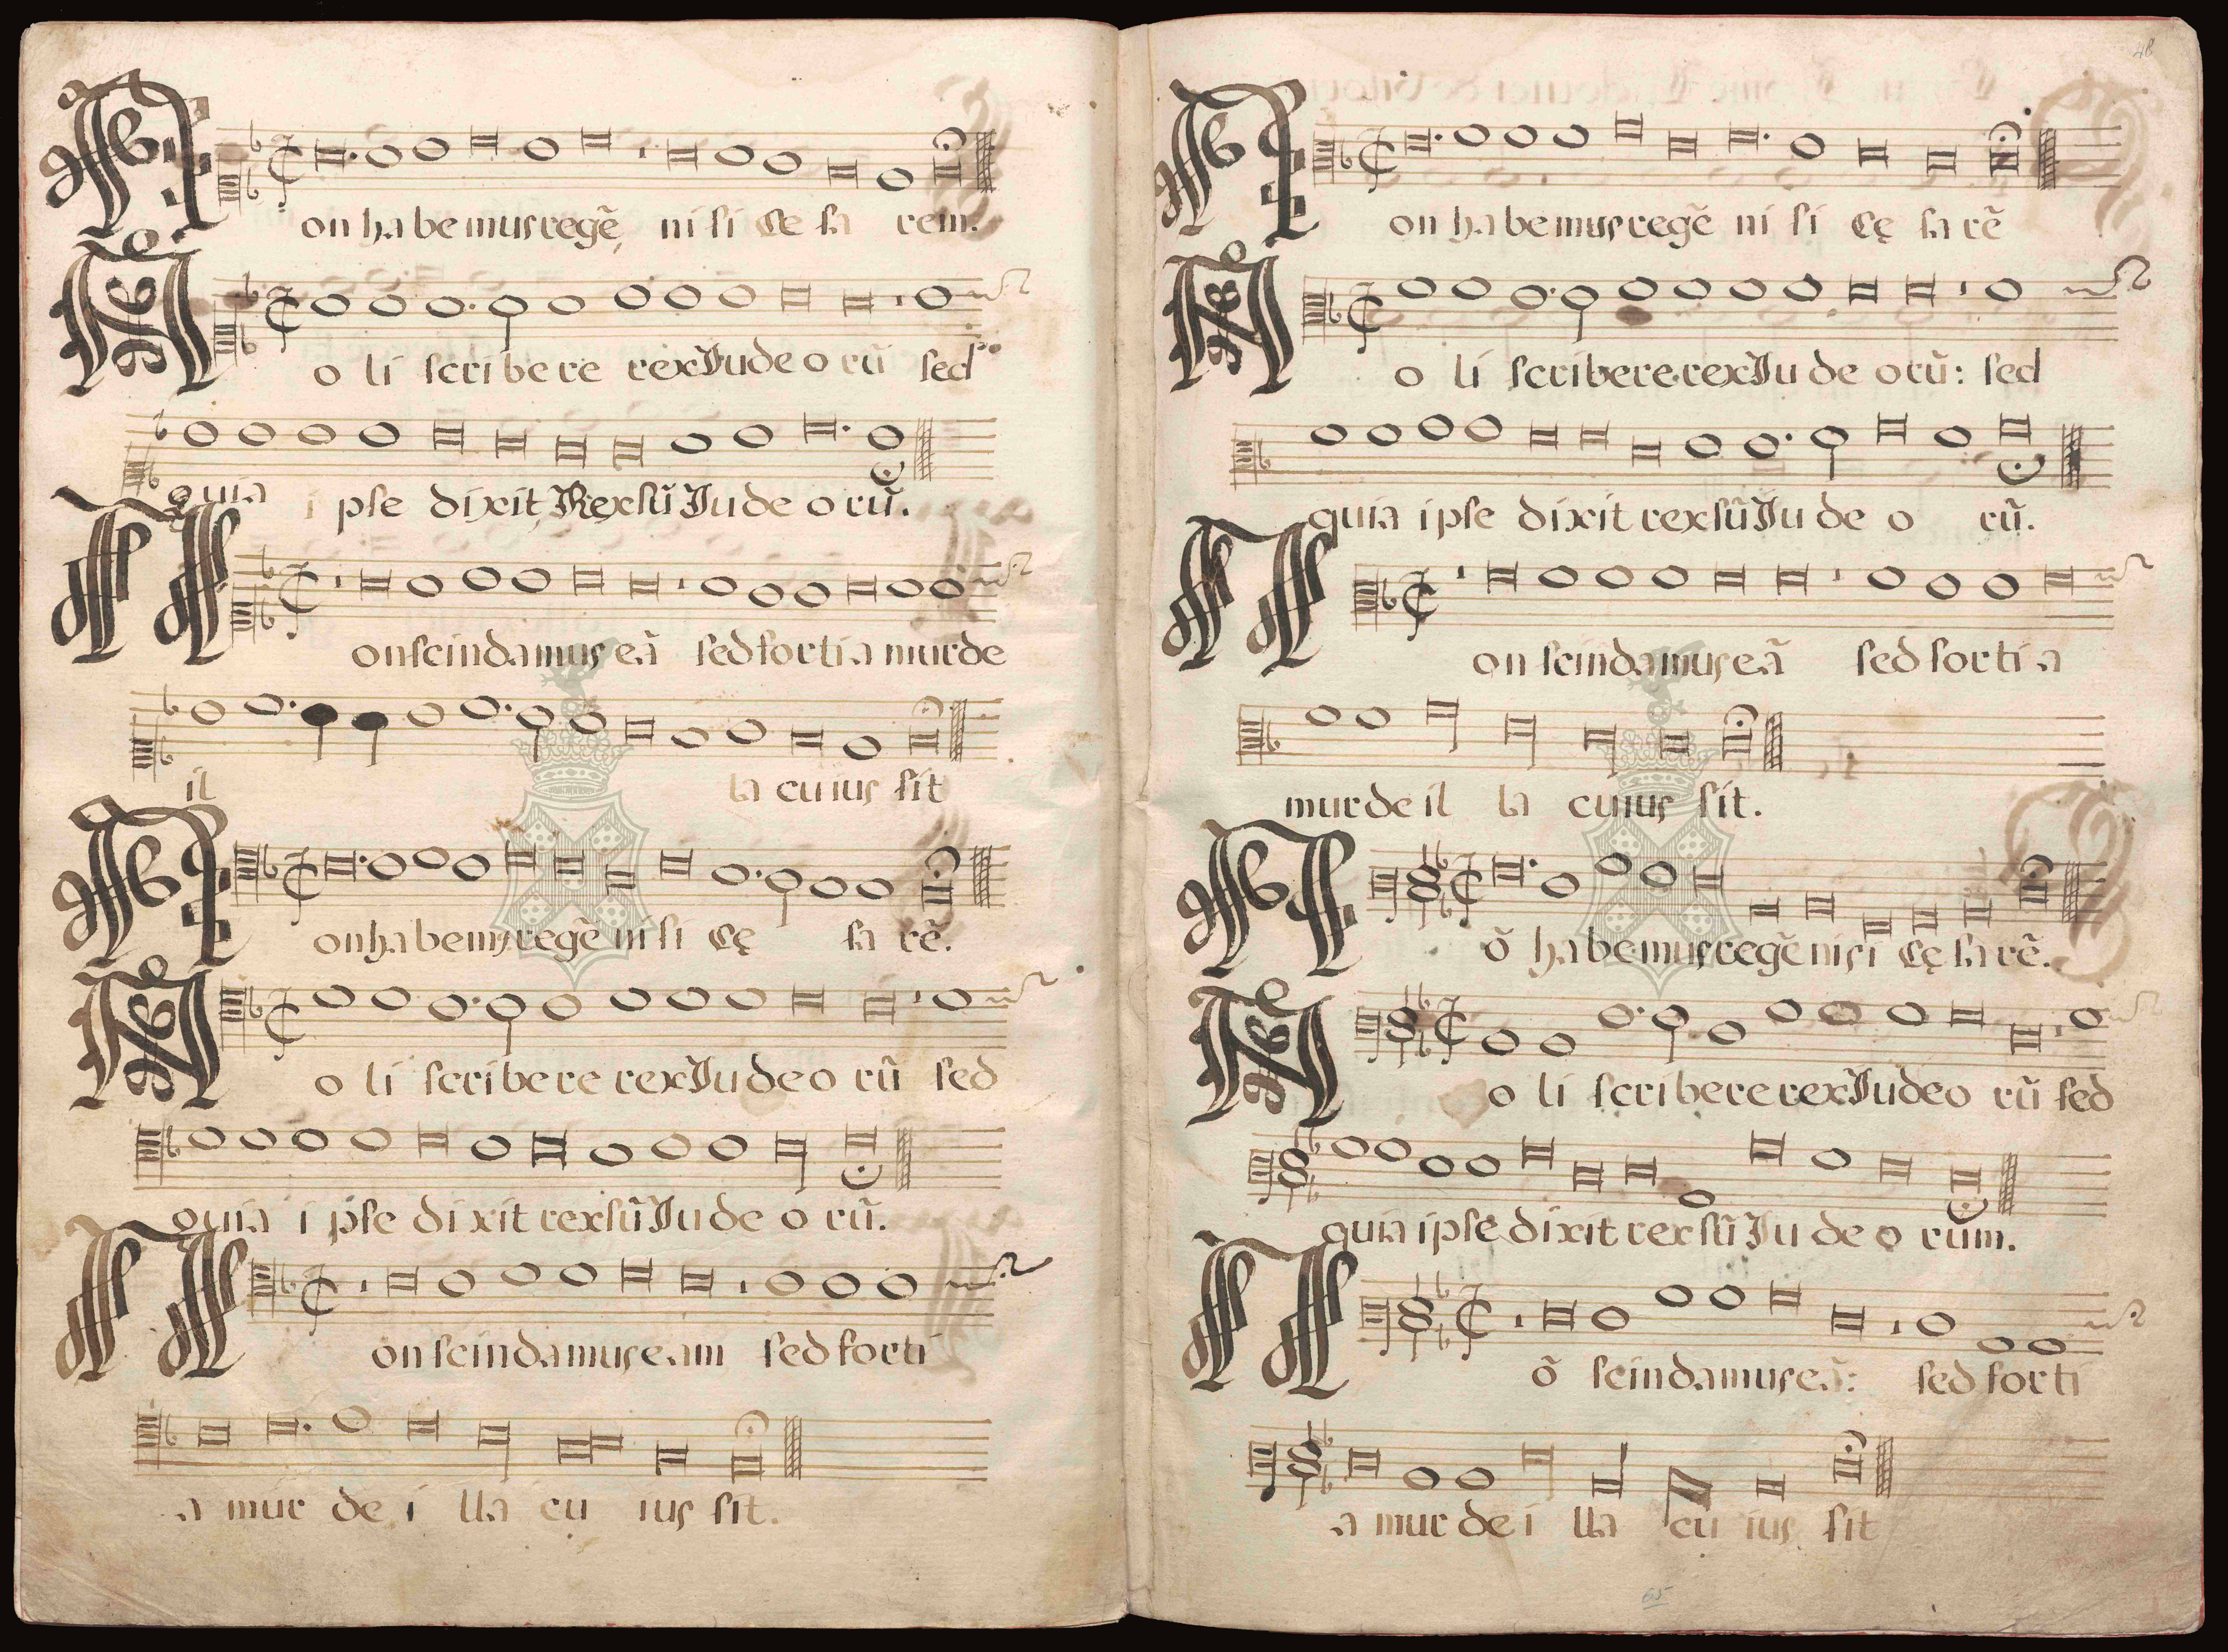 Non habemus regẽ nisi Cesarem.
Noli scribere rex Iudeorũ sed
quia ipse dixit Rex sũ Iudeorũ.
Non scindamus eã sed sortiamur de
illa cuius sit
Non habemus regẽ nisi Cęsarẽ.
Noli scribere rex Iudeorũ sed
quia ipse dixit rex sũ Iudeorũ.
Non scindamus eam sed sorti
amur de illa cuius sit.
48
Non habemus regẽ nisi Cęsarẽ
Noli scribere rex Iudeorũ: sed
quia ipse dixit rex sũ Iudeorũ.
Non scindamus eã sed sortia
mur de illa cuius sit.
Nõ habemus regẽ nisi Cęsarẽ.
Noli scribere rex Iudeorũ sed
quia ipse dixit rex sũ Iudeorum.
Nõ scindamus eã: sed sorti
amur de illa cuius sit
65